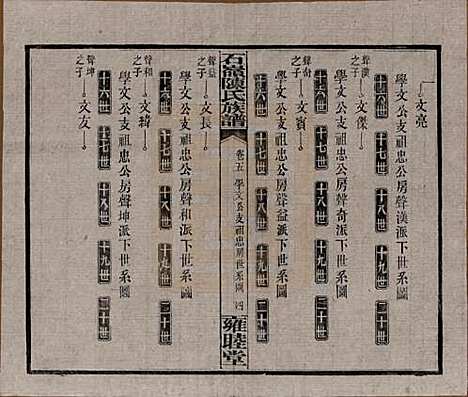 文亮
學文公支祖忠公房聲漢派下世系圖
十六世 十七世 十八世 十九世 二十世
聲漢之子 文傑
學文公支祖忠公房聲奇派下世系圖
十六世 十七世 十八世 十九世 二十世
聲奇之子 文賓
學文公支祖忠公房聲益派下世系圖
十六世 十七世 十八世 十九世 二十世
石嶺陳氏族譜
卷五 學文公支祖忠房世系圖 四
雍睦堂
聲益之子 文長
學文公支祖忠公房聲和派下世系圖
十六世 十七世 十八世 十九世 二十世
聲和之子 文綺
學文公支祖忠公房聲坤派下世系圖
十六世 十七世 十八世 十九世 二十世
聲坤之子 文友